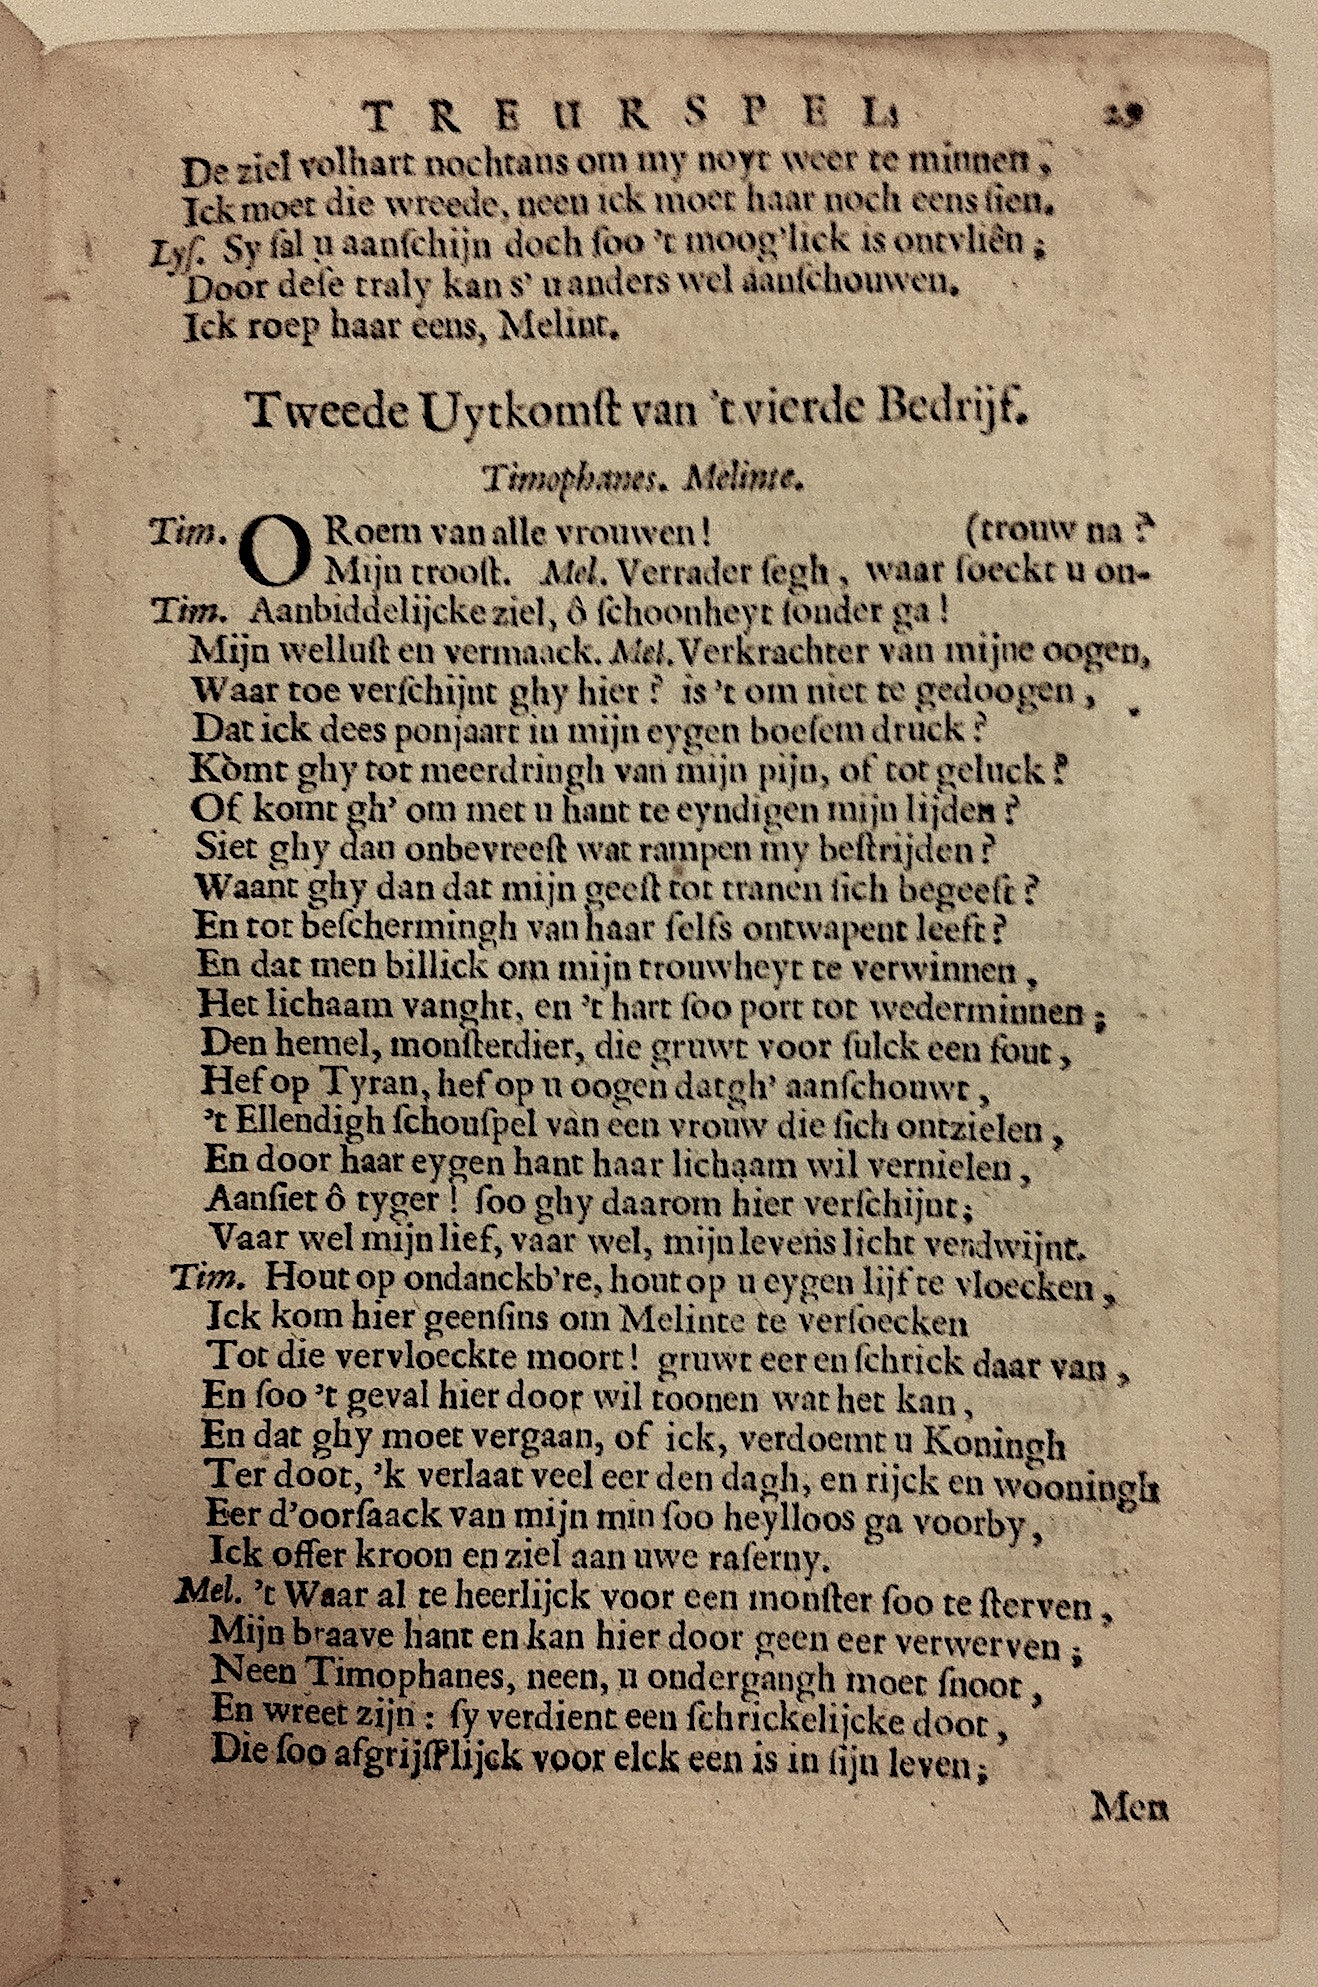 TREURSPEL. 29
De ziel volhart nochtans om my noyt weer te minnen,
Ick moet die wreede, neen ick moet haar noch eens ſien.
Lyſ. Sy ſal u aanſchijn doch ſoo 't moog'lick is ontvliên;
Door deſe traly kan s' u anders wel aanſchouwen.
Ick roep haar eens, Melint.
Tweede Uytkomſt van 't vierde Bedrijf.
Timophanes. Melinte.
Tim. O Roem van alle vrouwen! (trouw na?
Mijn trooſt. Mel. Verrader ſegh, waar ſoeckt u on-
Tim. Aanbiddelijcke ziel, ô ſchoonheyt ſonder ga!
Mijn welluſt en vermaack. Mel. Verkrachter van mijne oogen,
Waar toe verſchijnt ghy hier? is 't om niet te gedoogen,
Dat ick dees ponjaart in mijn eygen boeſem druck?
Komt ghy tot meerdringh van mijn pijn, of tot geluck?
Of komt gh' om met u hant te eyndigen mijn lijden?
Siet ghy dan onbevreeſt wat rampen my beſtrijden?
Waant ghy dan dat mijn geeſt tot tranen ſich begeeft?
En tot beſchermingh van haar ſelfs ontwapent leeft?
En dat men billick om mijn trouwheyt te verwinnen,
Het lichaam vanght, en 't hart ſoo port tot wederminnen;
Den hemel, monſterdier, die gruwt voor ſulck een fout,
Hef op Tyran, hef op u oogen dat gh' aanſchouwt,
't Ellendigh ſchouſpel van een vrouw die ſich ontzielen,
En door haar eygen hant haar lichaam wil vernielen,
Aanſiet ô tyger! ſoo ghy daarom hier verſchijnt;
Vaar wel mijn lief, vaar wel, mijn levens licht verdwijnt.
Tim. Hout op ondanckb're, hout op u eygen lijf te vloecken,
Ick kom hier geenſins om Melinte te verſoecken
Tot die vervloeckte moort! gruwt eer en ſchrick daar van,
En ſoo 't geval hier door wil toonen wat het kan,
En dat ghy moet vergaan, of ick, verdoemt u Koningh
Ter doot, 'k verlaat veel eer den dagh, en rijck en wooningh
Eer d'oorſaack van mijn min ſoo heylloos ga voorby,
Ick offer kroon en ziel aan uwe raſerny.
Mel. 't Waar al te heerlijck voor een monſter ſoo te ſterven,
Mijn braave hant en kan hier door geen eer verwerven;
Neen Timophanes, neen, u ondergangh moet ſnoot,
En wreet zijn: ſy verdient een ſchrickelijcke doot,
Die ſoo afgrijſſ'lijck voor elck een is in ſijn leven;
Men